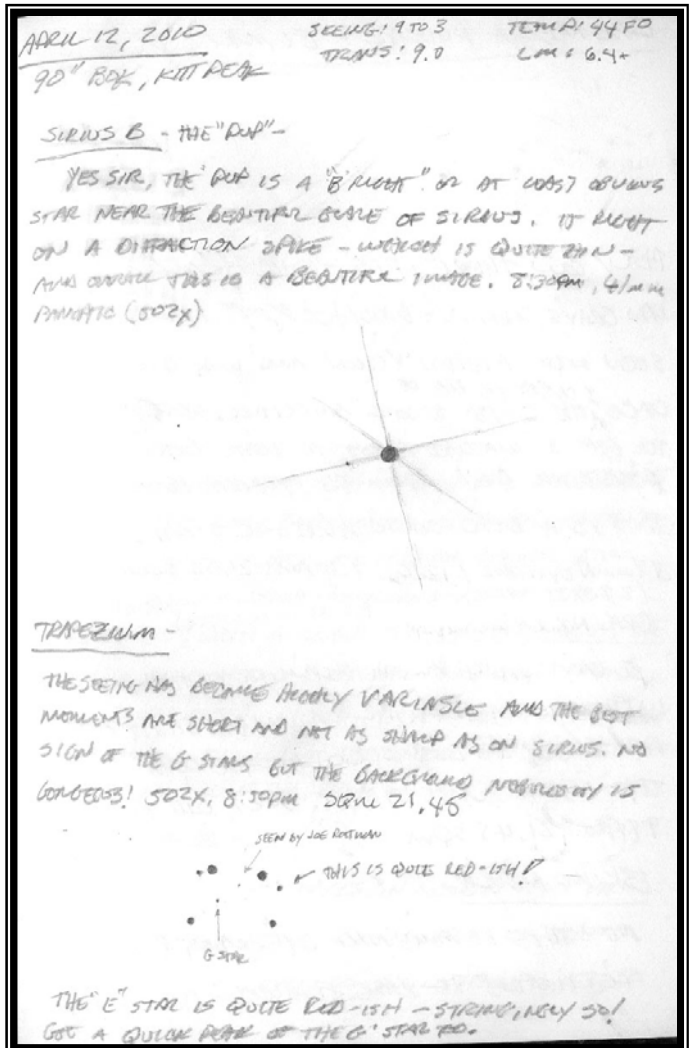 APRIL 12, 2010
SEEING: 9 TO 3 TEMP: 44 F
TRANS: 9.0 LM: 6.4+
90" BOK, KITT PEAK
SIRIUS B - THE "PUP" -
YES SIR, THE PUP IS A "BRIGHT" OR AT LEAST OBVIOUS
STAR NEAR THE BEAUTIFUL GLARE OF SIRIUS. IT RIGHT
ON A DIFFRACTION SPIKE - WHICH IS QUITE THIN -
AND OVERALL THIS IS A BEAUTIFUL IMAGE. 8:30PM, 41mm
PANOPTIC (502X)
TRAPEZIUM -
THE SEEING HAS BECOME HIGHLY VARIABLE AND THE BEST
MOMENTS ARE SHORT AND NOT AS SHARP AS ON SIRIUS. NO
SIGN OF THE G STARS BUT THE BACKGROUND NEBULOSITY IS
GORGEOUS! 502X, 8:50PM SQM: 21.45
SEEN BY JOE
THIS IS QUITE RED-ISH!
G STAR
THE "E" STAR IS QUITE RED-ISH - STRIKINGLY SO!
GOT A QUICK PEAK OF THE G STAR TOO.